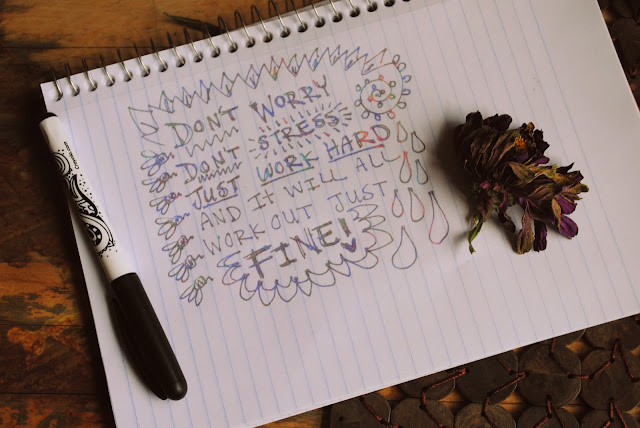 DON'T WORRY
DON'T STRESS
JUST WORK HARD
AND IT WILL ALL
WORK OUT JUST
FINE!